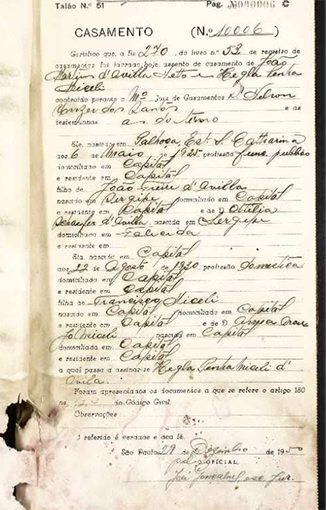 Talão N.º 51 Pag. Nº000006 C
CASAMENTO (N.º 10006)
Certifico que, a fls 270, do livro n.º 33 de registro de
casamentos foi lavrado, hoje, assento de casamento de João
Martins d'Avilla Neto e Hegla Penha
Miceli
contraido perante o Mº Juiz de Casamentos Dr Nelson
dos e as
testemunhas as do termo
Ele, nascido em Palhoça, Est. S. Catharina
aos 6 de Maio de 1925, profissão func. publico
domiciliado em Capital
e residente em Capital
filho de João Freire d'Avilla
nascido em Sergipe domiciliado em Capital
e residente em Capital e de D. Otilia
d'Avilla, nascida em Sergipe
domiciliada em Falecida
e residente em
Ela, nascida em Capital
aos 22 de Agosto de 1930, profissão domestica
domiciliada em Capital
e residente em Capital
filha de Francisco Miceli
nascido em Capital domiciliado em Capital
e residente em Capital e de D.
Miceli nascida em Capital
domiciliada em Capital
e residente em Capital
a qual passa a assinar-se Hegla Penha Miceli d'
Avila.
Foram apresentados os documentos a que se refere o artigo 180
do Código Civil.
Observações
O referido é verdade e dou fé.
São Paulo, 29 de Dezembro de 1950
OFICIAL